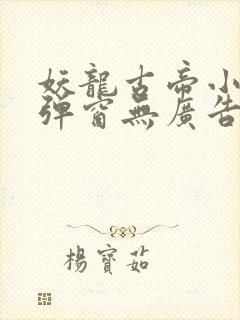 妖龍古帝小
彈窗無廣告
楊寶茹